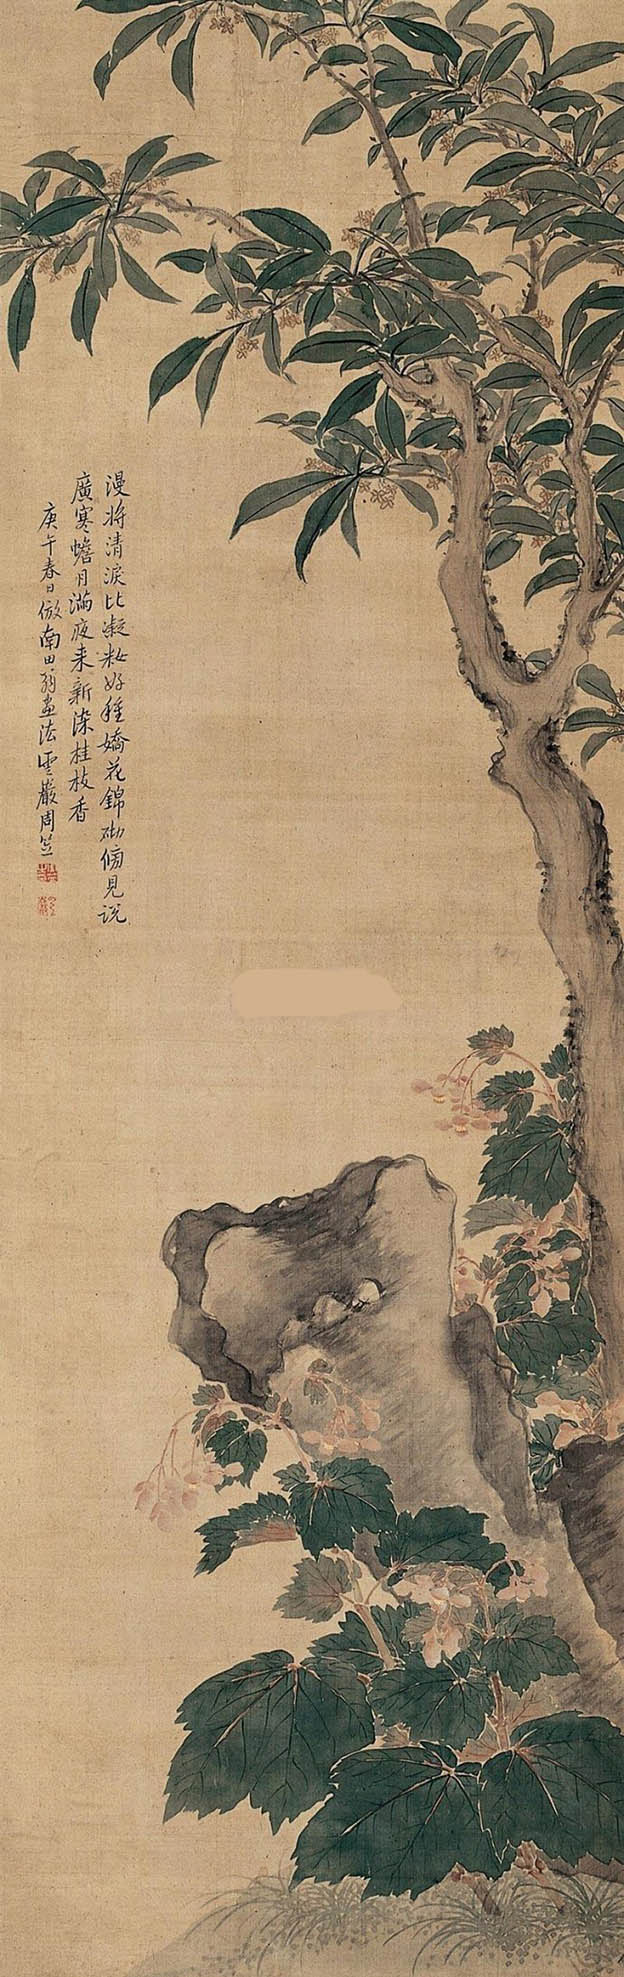 漫将清淚比凝粧好種嬌花錦砌傍見説
廣寒蟾月滿夜来新染桂枝香
庚午春日倣南田翁畫法雲巖周笠